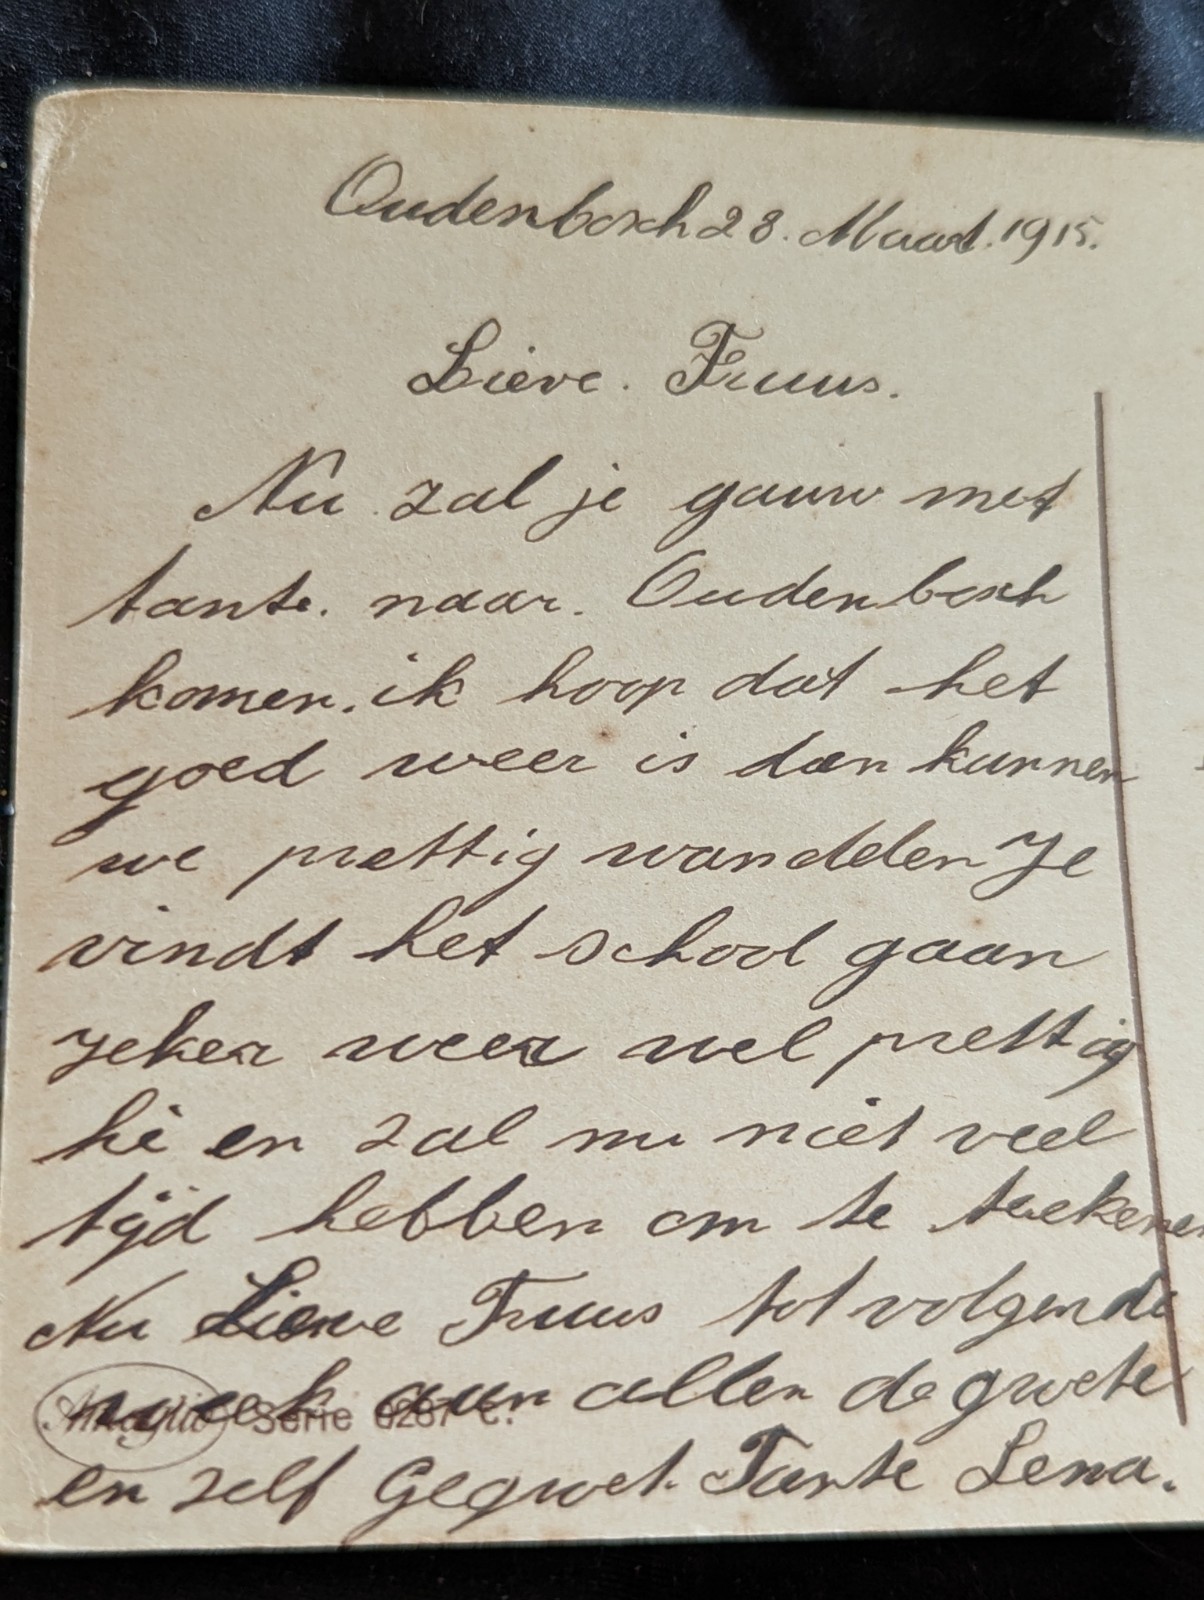 Oudenbosch 28. Maart. 1915.
Lieve. Truus.
Nu zal je gauw met
tante. naar. Oudenbosch
komen. ik hoop dat het
goed weer is dan kunnen
we prettig wandelen Je
vindt het school gaan
zeker weer wel prettig
hè en zal nu niet veel
tijd hebben om te teekenen
Nu Lieve Truus tot volgende
week aan allen de groete
Amag Serie 6267 C.
en zelf Gegroet. Tante Lena.